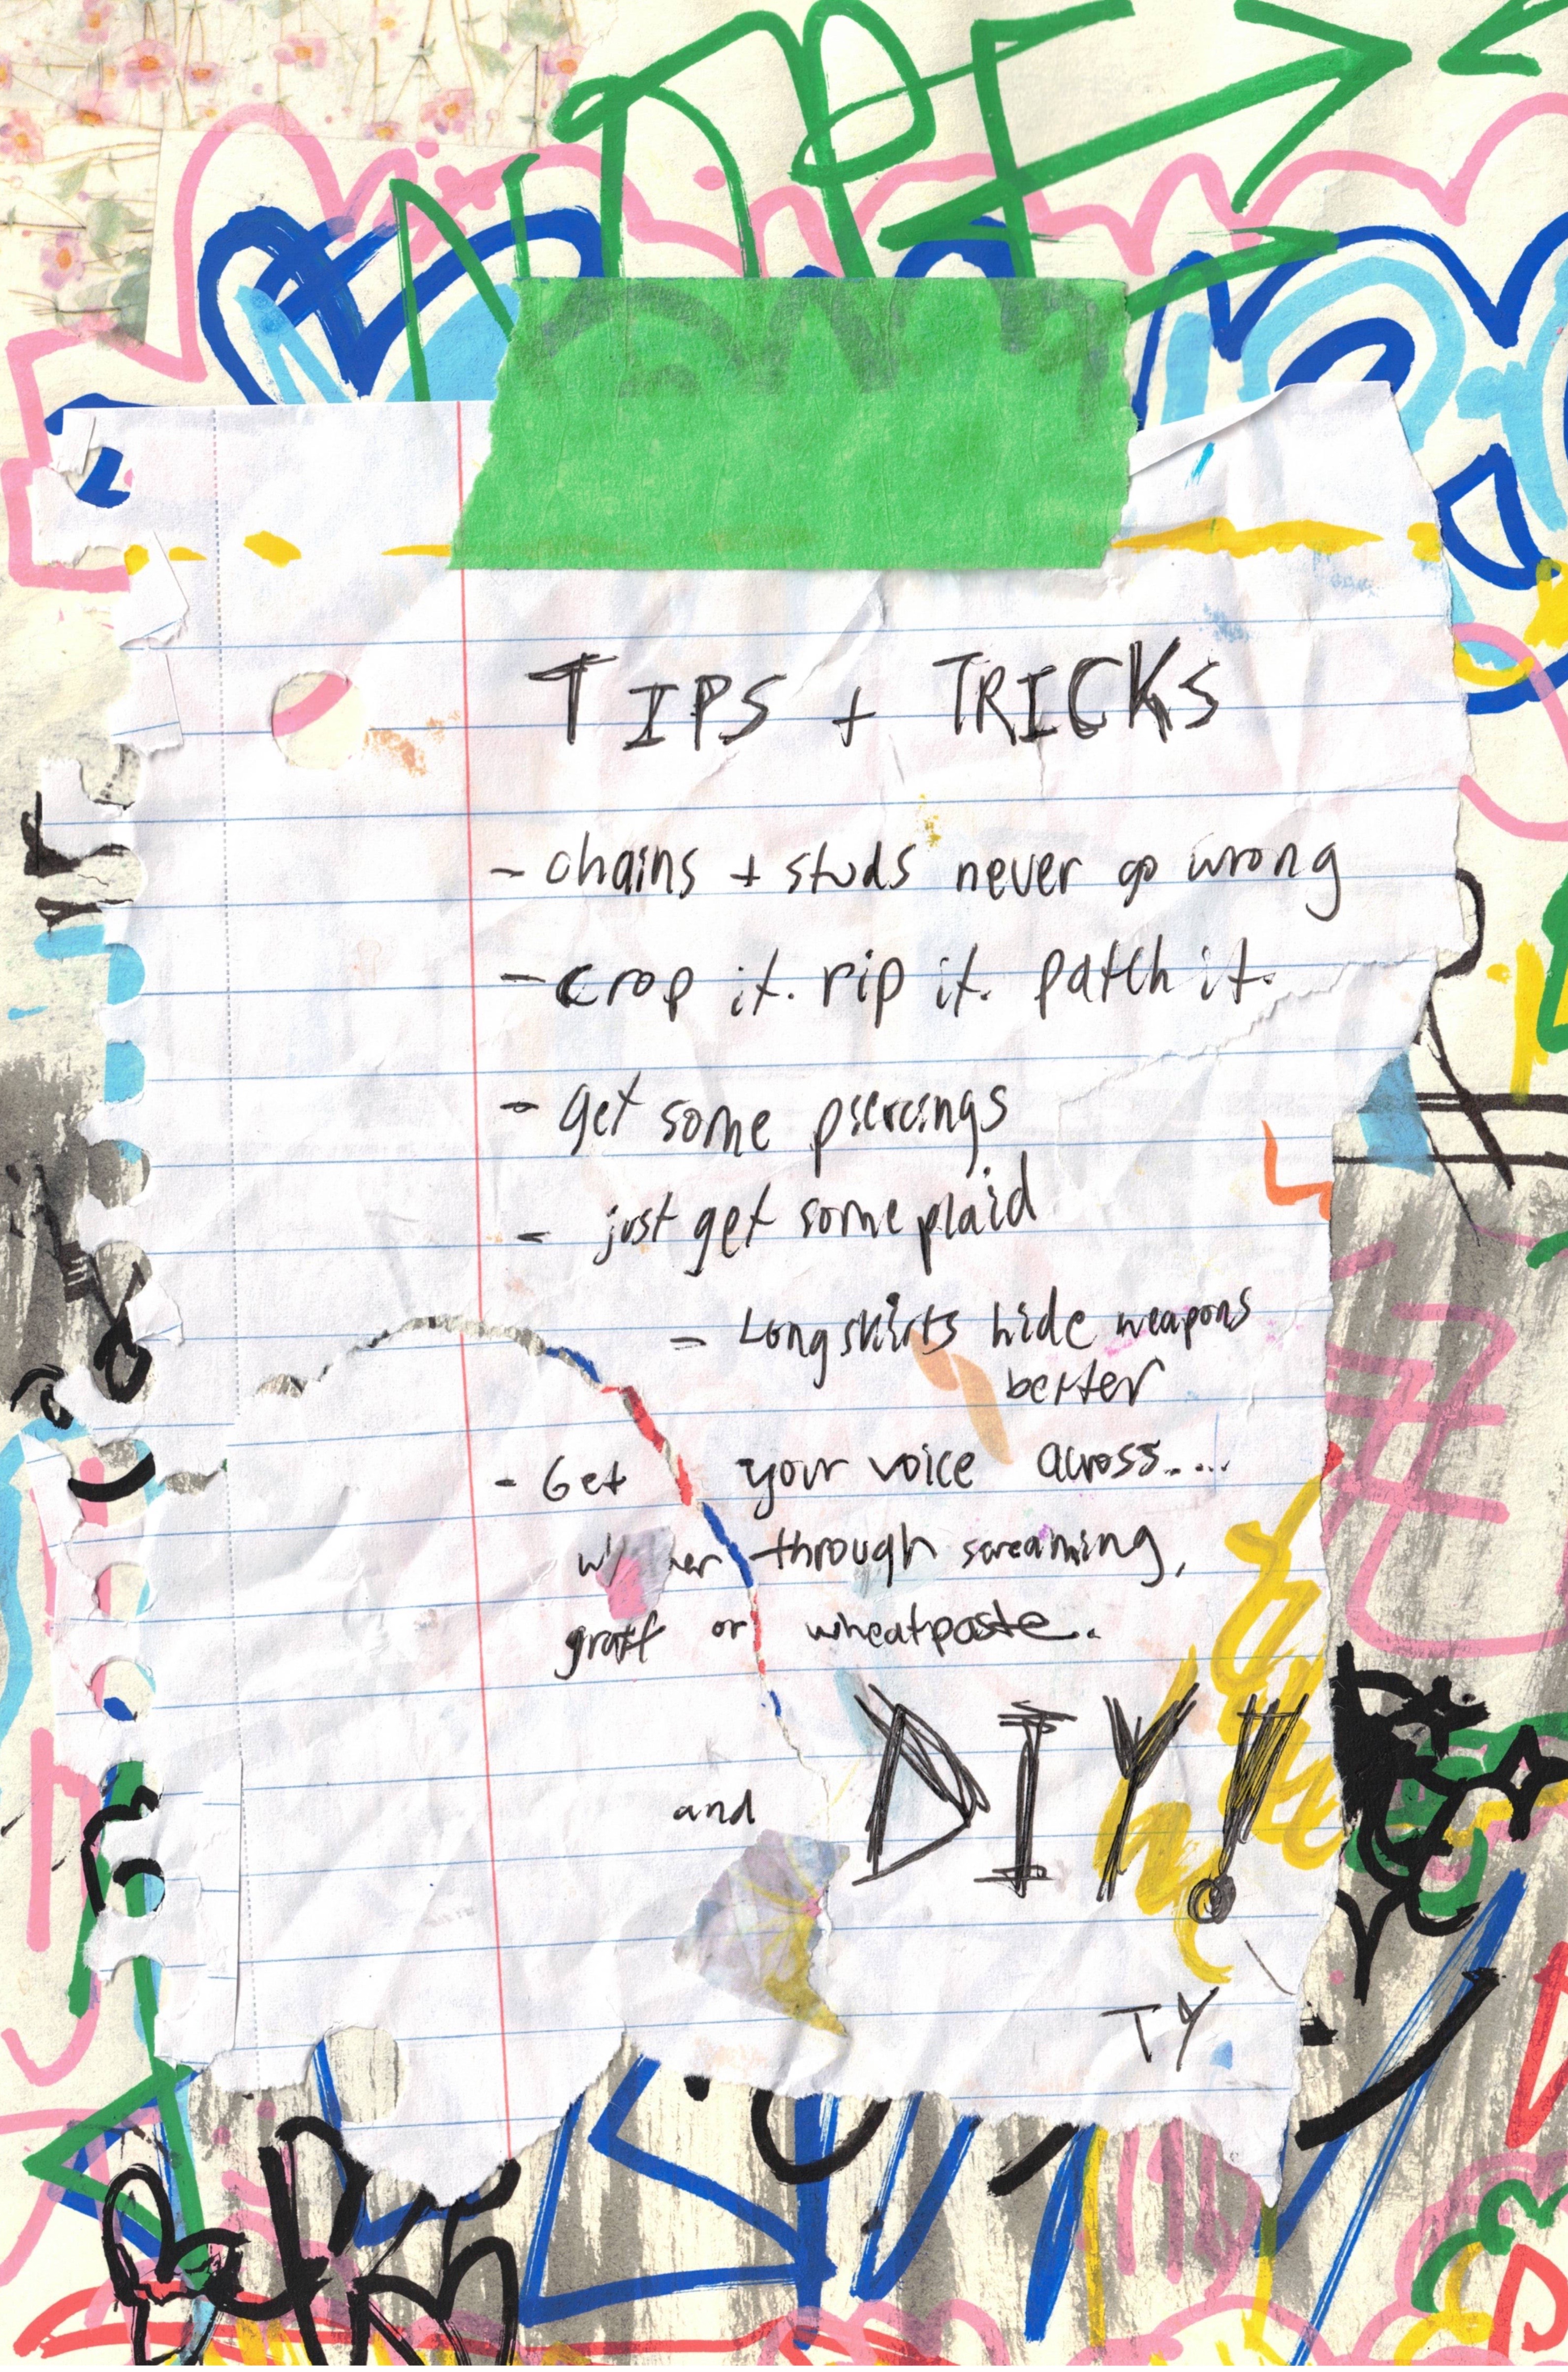 TIPS + TRICKS
- chains + studs never go wrong
- crop it. rip it. patch it.
- get some piercings
- just get some plaid
- Long skirts hide weapons
better
- Get your voice across....
through screaming,
graff or wheatpaste.
and DIY!
TY